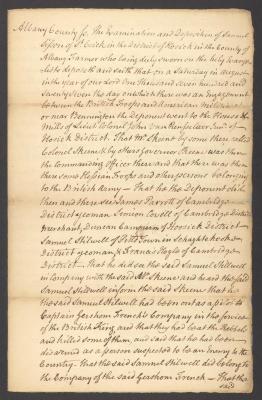 Albany County ss. The Examination and Deposition of Samuel
of St. Croick in the district of Hosick in the County of
Albany Farmer who being duly sworn on the holy Evange-
lists deposeth and saith that on a Saturday in august
in the year of our Lord One thousand seven hundred and
seventy seven the day on which there was an Engagement
between the British Troops and American militia at
or near Bennington the deponent went to the House &
Mills of Lieut Colonel John van Rensselaer Junr. of
Hosick District. That Mr. Skeene by some there called
Colonel Skeene & by others Governor Skean was then
the Commanding officer there and that there was then
there some Hessian Troops and other persons belonging
to the British Army — That he the Deponent did
then and there see James Parrott of Cambridge
District yeoman Simeon Covell of Cambridge District
merchant, Duncan Cameron of Hosick District
Samuel Stilwell of Pitts Town in Schaghtekock
District yeoman & Francis Hogle of Cambridge
District — That he did see the said Samuel Stilwell
in Company with the said Mr. Skeene and heard the said
Samuel Stilwell inform the said Skeene that he
the said Samuel Stilwell had been out as a pilot to
Captain Gershom French's Company in the service
of the British King and that they had beat the Rebbels
and killed some of them, and said that he had been
discerned as a person suspected to be an Enemy to the
Country. That the said Samuel Stilwell did belong to
the Company of the said Gershom French — That the
said